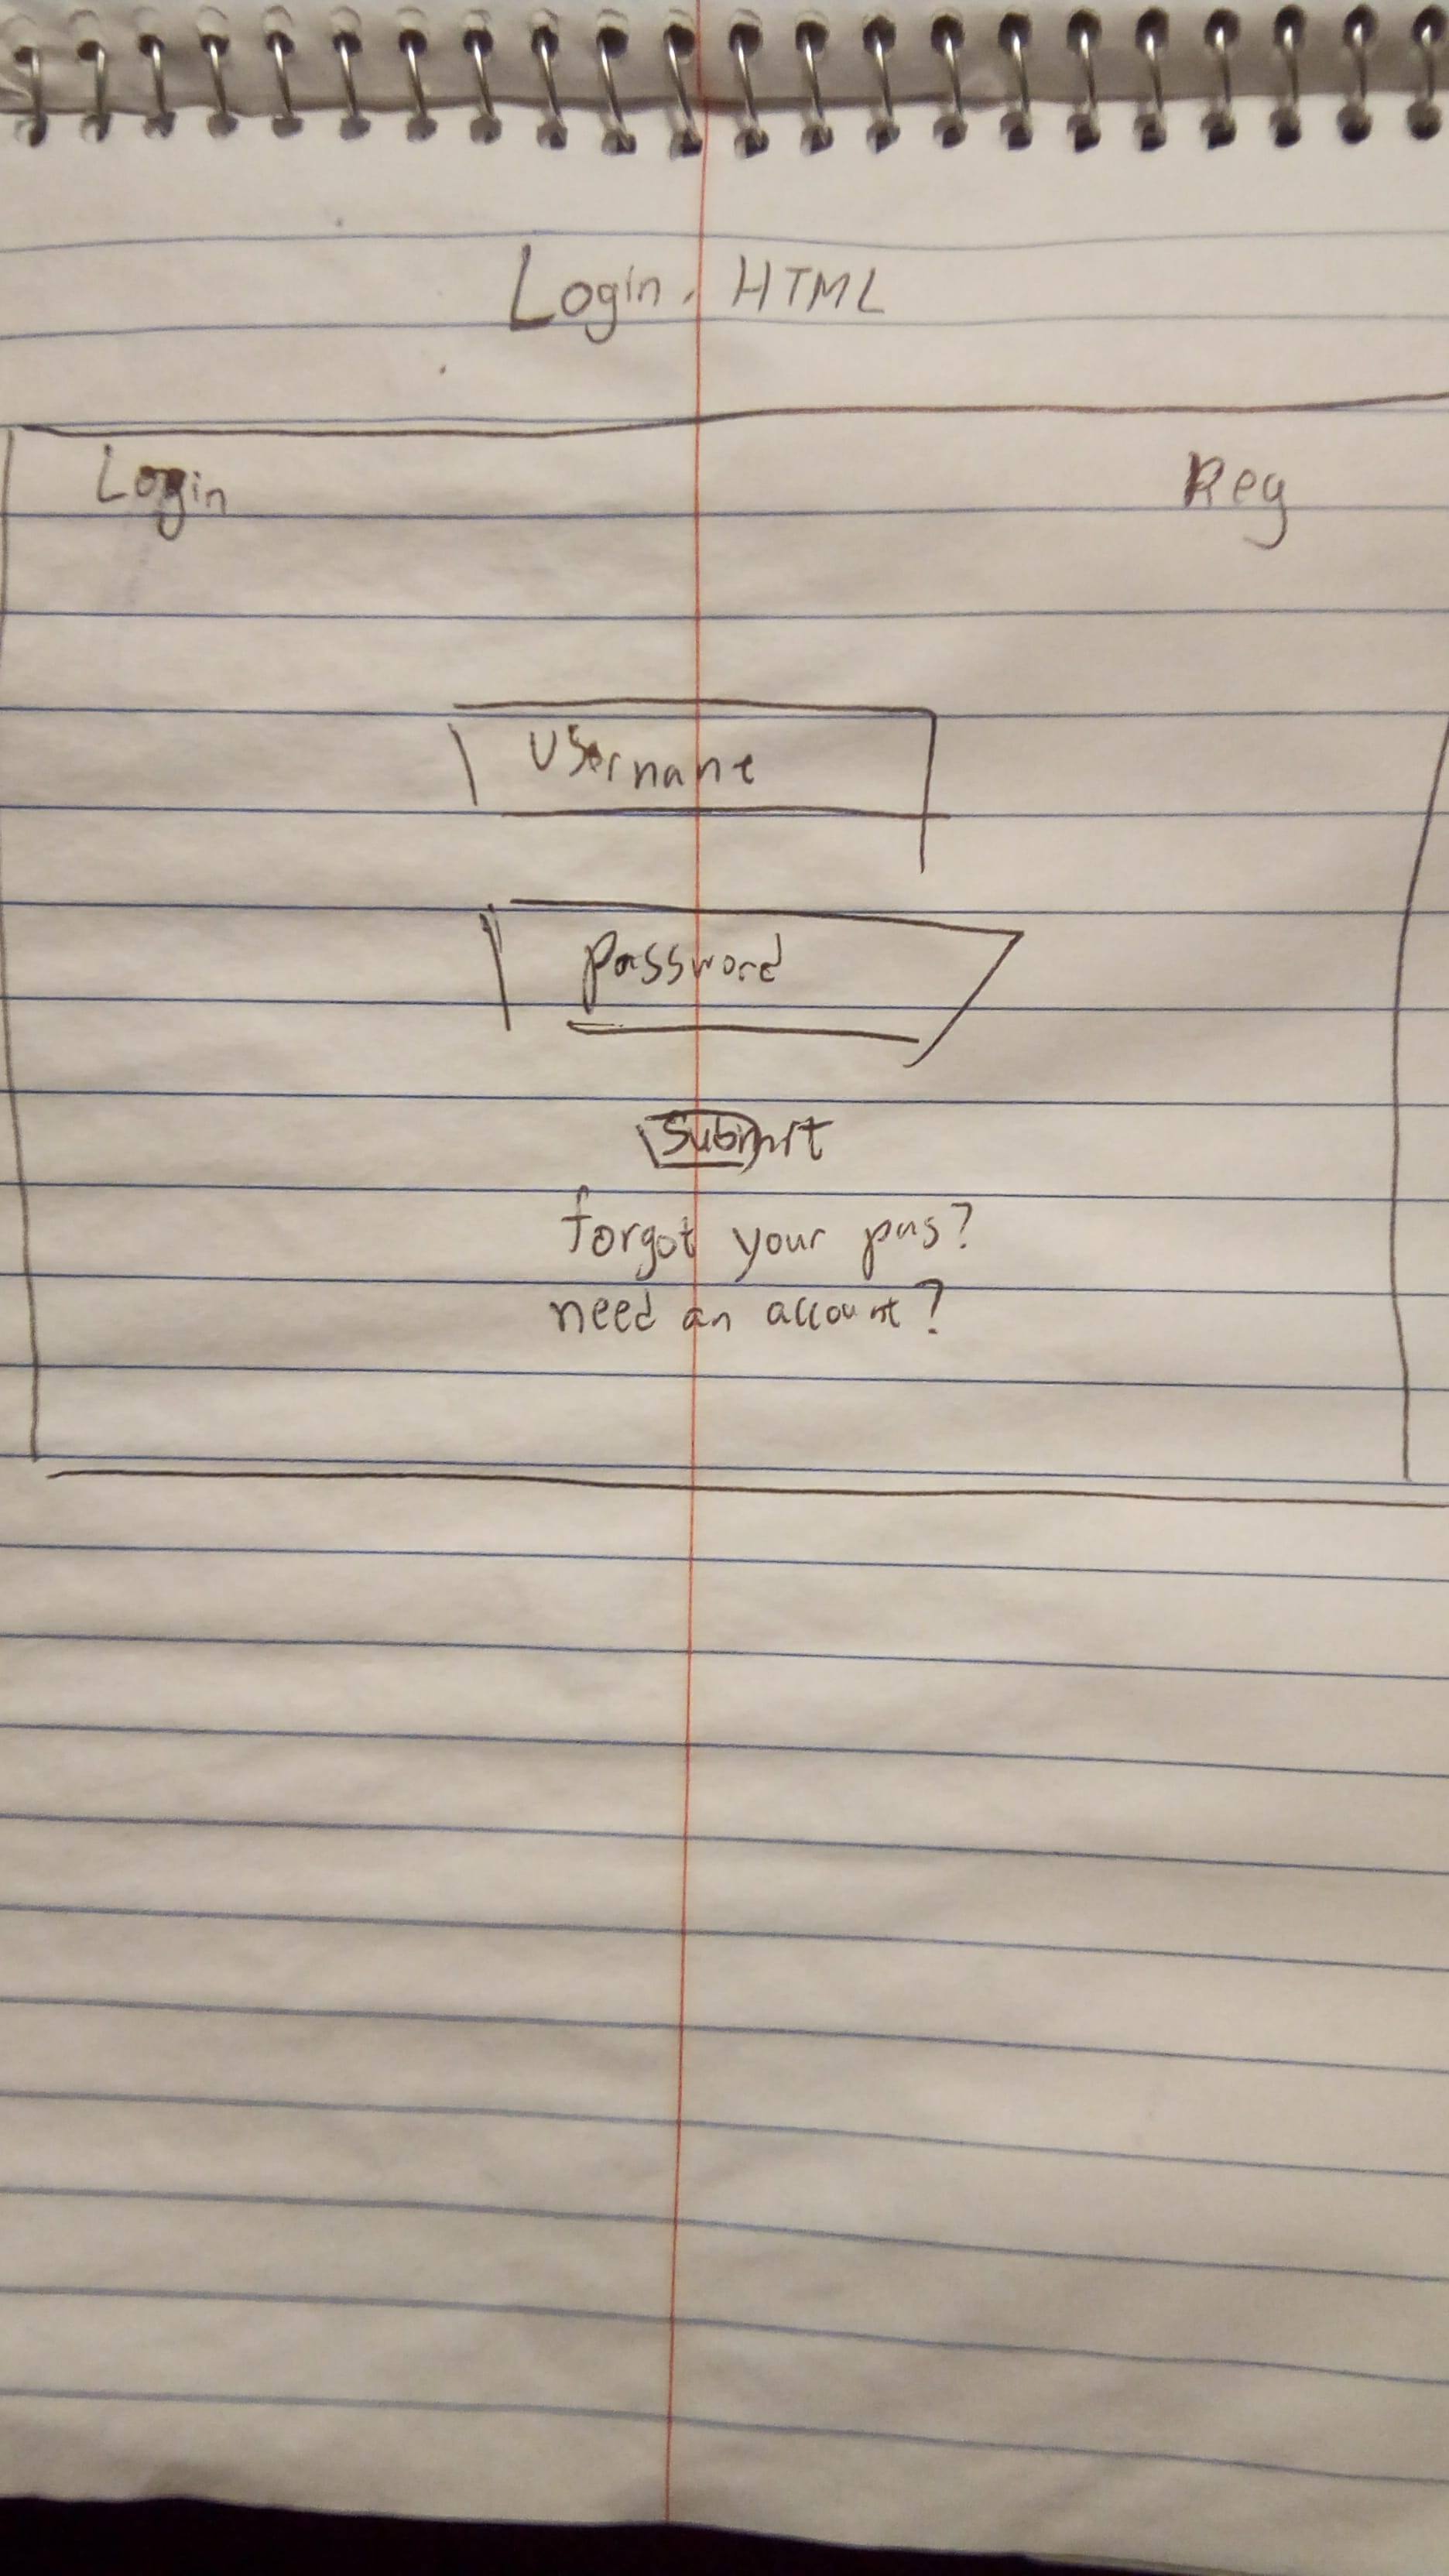 Login. HTML
Login Reg
Username
password
Submit
forgot your pas?
need an account?